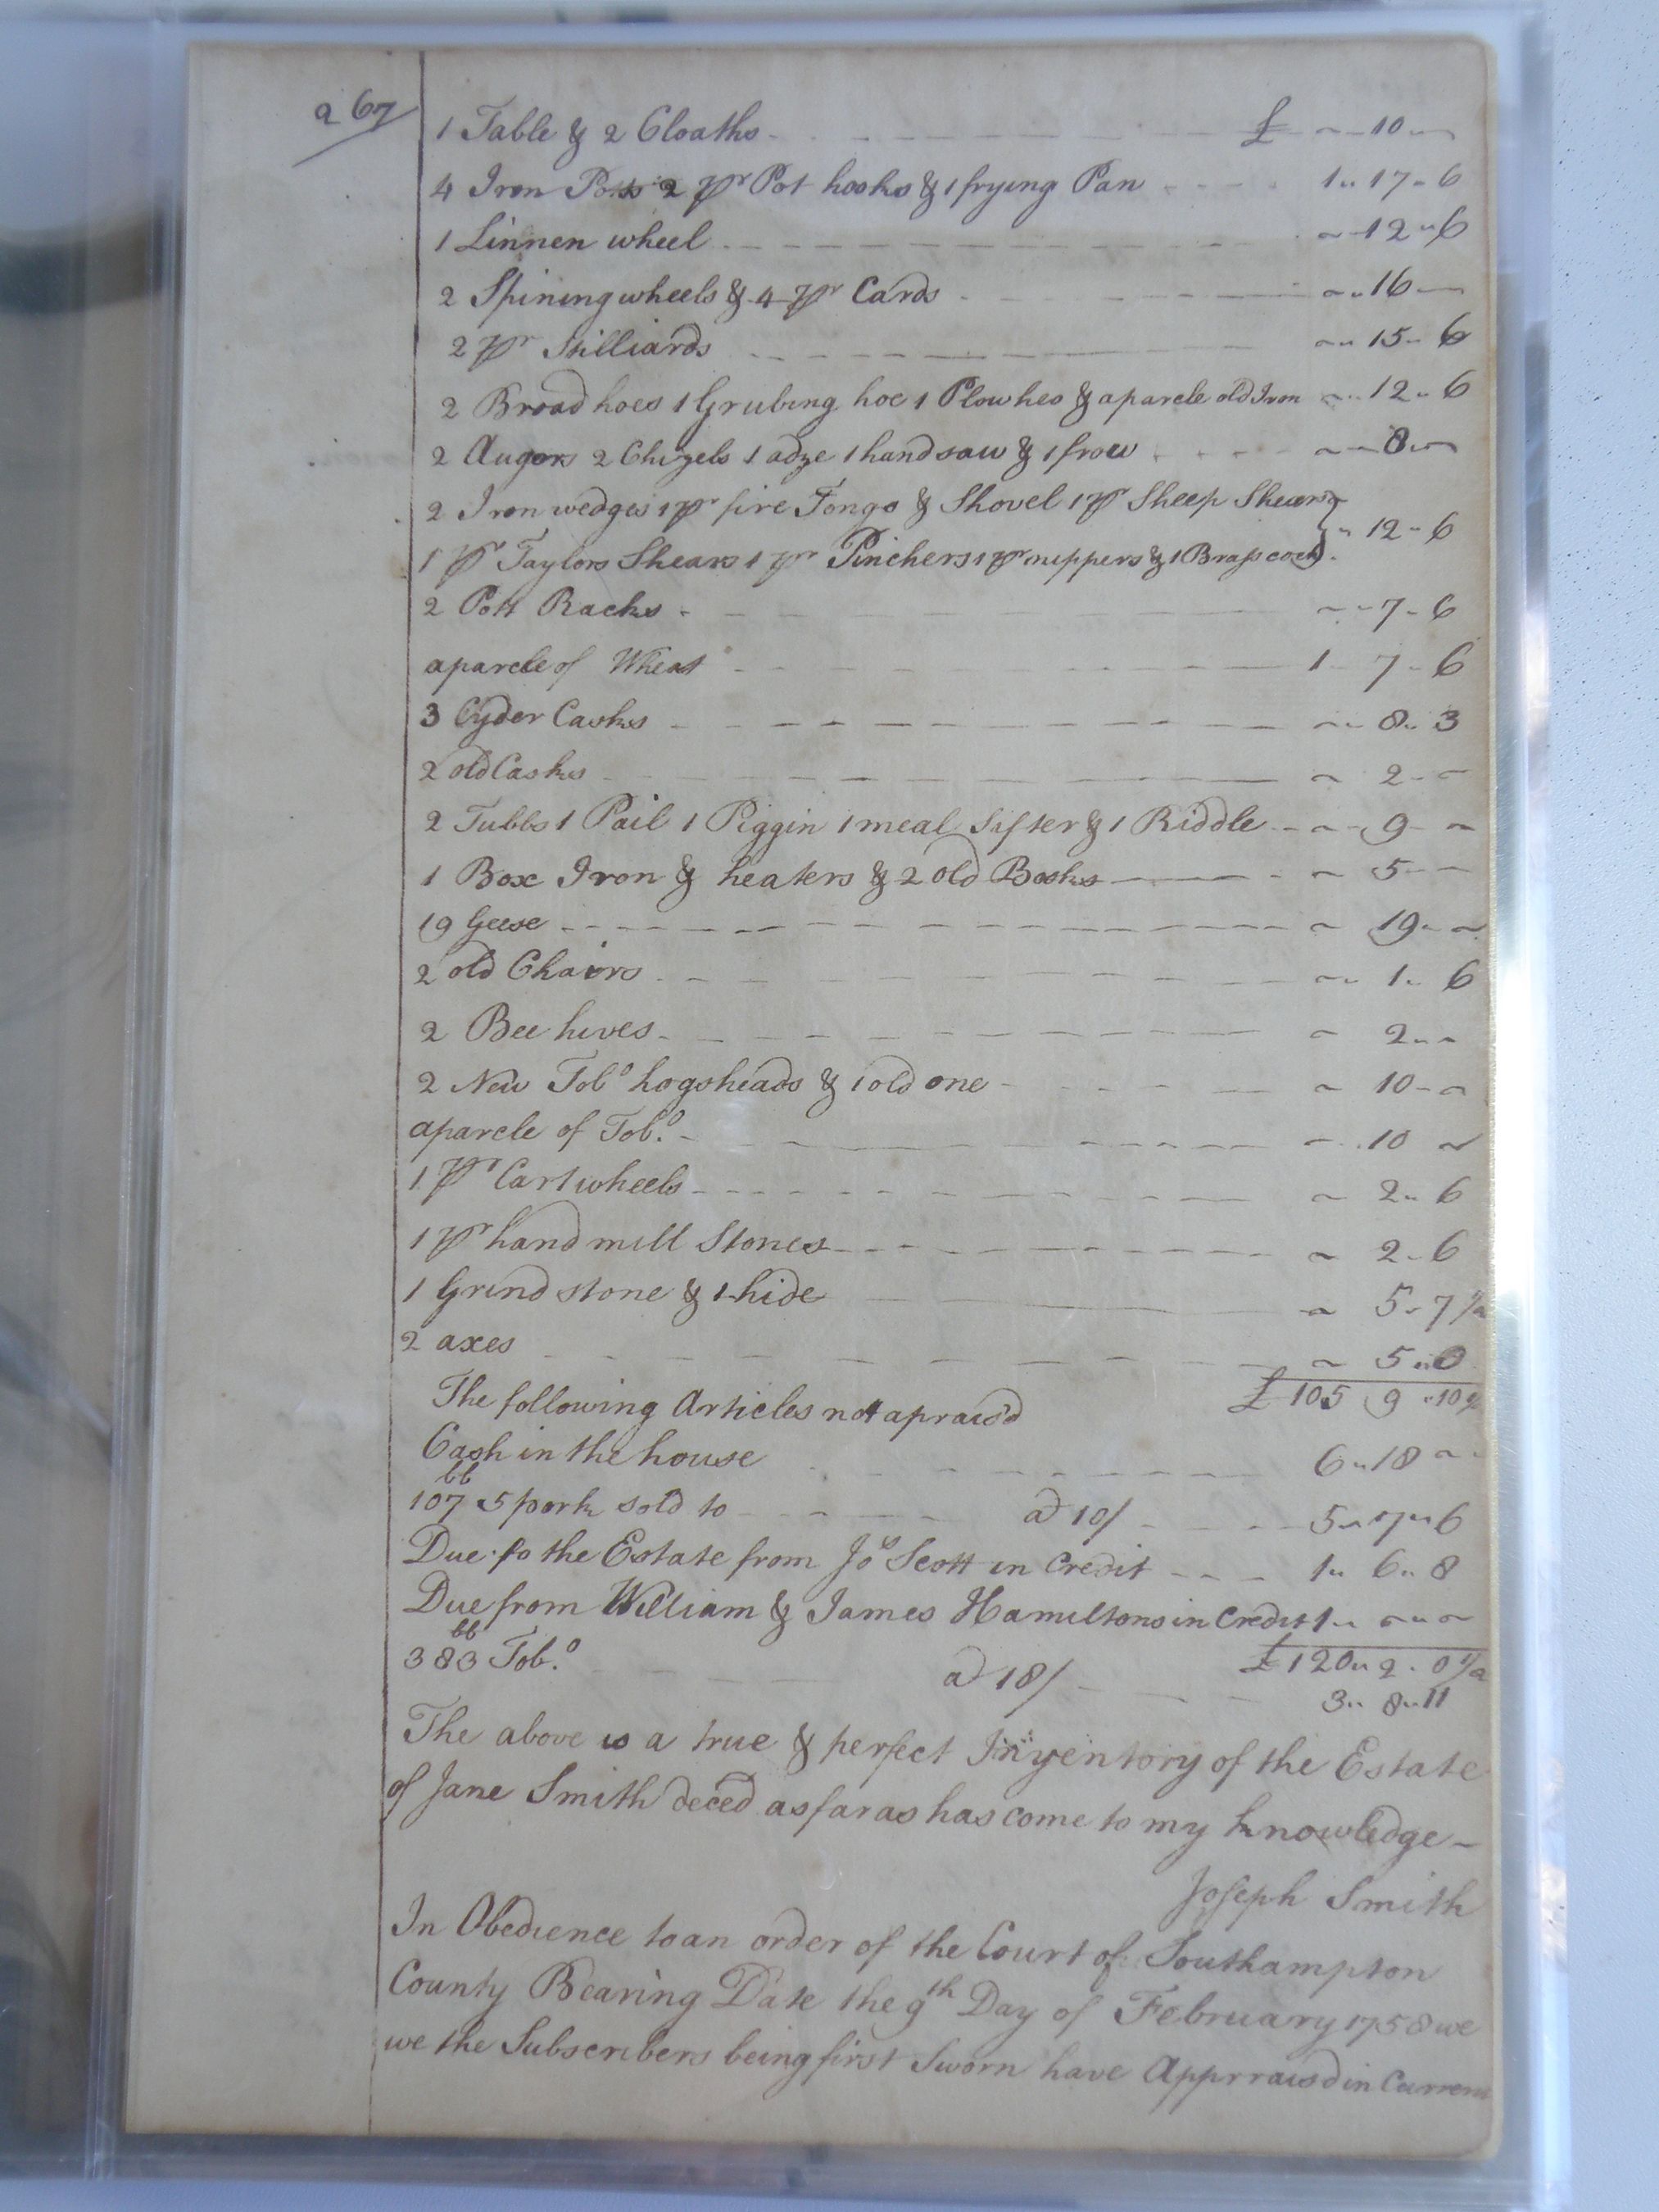 267
1 Table & 2 Cloaths £ ~ 10 ~
4 Iron Potts 2 pr Pot hooks & 1 frying Pan 1 „ 17 „ 6
1 Linnen wheel ~ 12 „ 6
2 Spining wheels & 4 pr Cards ~ „ 16 ~
2 pr Stilliards ~ „ 15 „ 6
2 Broad hoes 1 Grubing hoe 1 Plow heo & aparcle old Iron ~ „ 12 „ 6
2 Augors 2 Chizels 1 adze 1 hand saw & 1 frow ~ 8 „ ~
2 Iron wedges 1 pr fire Tongs & Shovel 1 pr Sheep Shears
1 pr Taylors Shears 1 pr Pinchers 1 pr nippers & 1 Brass cock „ 12 „ 6
2 Pott Racks ~ „ 7 „ 6
aparcle of Wheat 1 „ 7 „ 6
3 Cyder Casks ~ „ 8 „ 3
2 old Casks ~ 2 „ ~
2 Tubbs 1 Pail 1 Piggin 1 meal Sifter & 1 Riddle ~ 9 ~
1 Box Iron & heaters & 2 old Books ~ 5 ~
19 Geese ~ 19 „ ~
2 old Chairs ~ „ 1 „ 6
2 Bee hives ~ 2 „ ~
2 New Tobo hogsheads & 1 old one ~ 10 „ ~
aparcle of Tob.o ~ 10 ~
1 pr Cart wheels ~ 2 „ 6
1 pr hand mill Stones ~ 2 „ 6
1 Grind stone & 1 hide ~ 5 „ 7 1/2
2 axes ~ 5 „ 0
The following Articles nott aprais'd £ 105 „ 9 „ 10 1/2
Cash in the house 6 „ 18 ~
107 lb 5 pork sold to a 10/ 5 „ 7 „ 6
Due to the Estate from Jos Scott in Credit 1 „ 6 „ 8
Due from William & James Hamiltons in Credit 1 „ ~ „ ~
£ 120 „ 2 „ 0 1/2
383 lb Tob.o a 18/ 3 „ 8 „ 11
The above is a true & perfect Inventory of the Estate
of Jane Smith deced as far as has come to my knowledge
Joseph Smith
In Obedience to an order of the Court of Southampton
County Bearing Date the 9th Day of February 1758 we
we the Subscribers being first Sworn have Apprraisd in Current